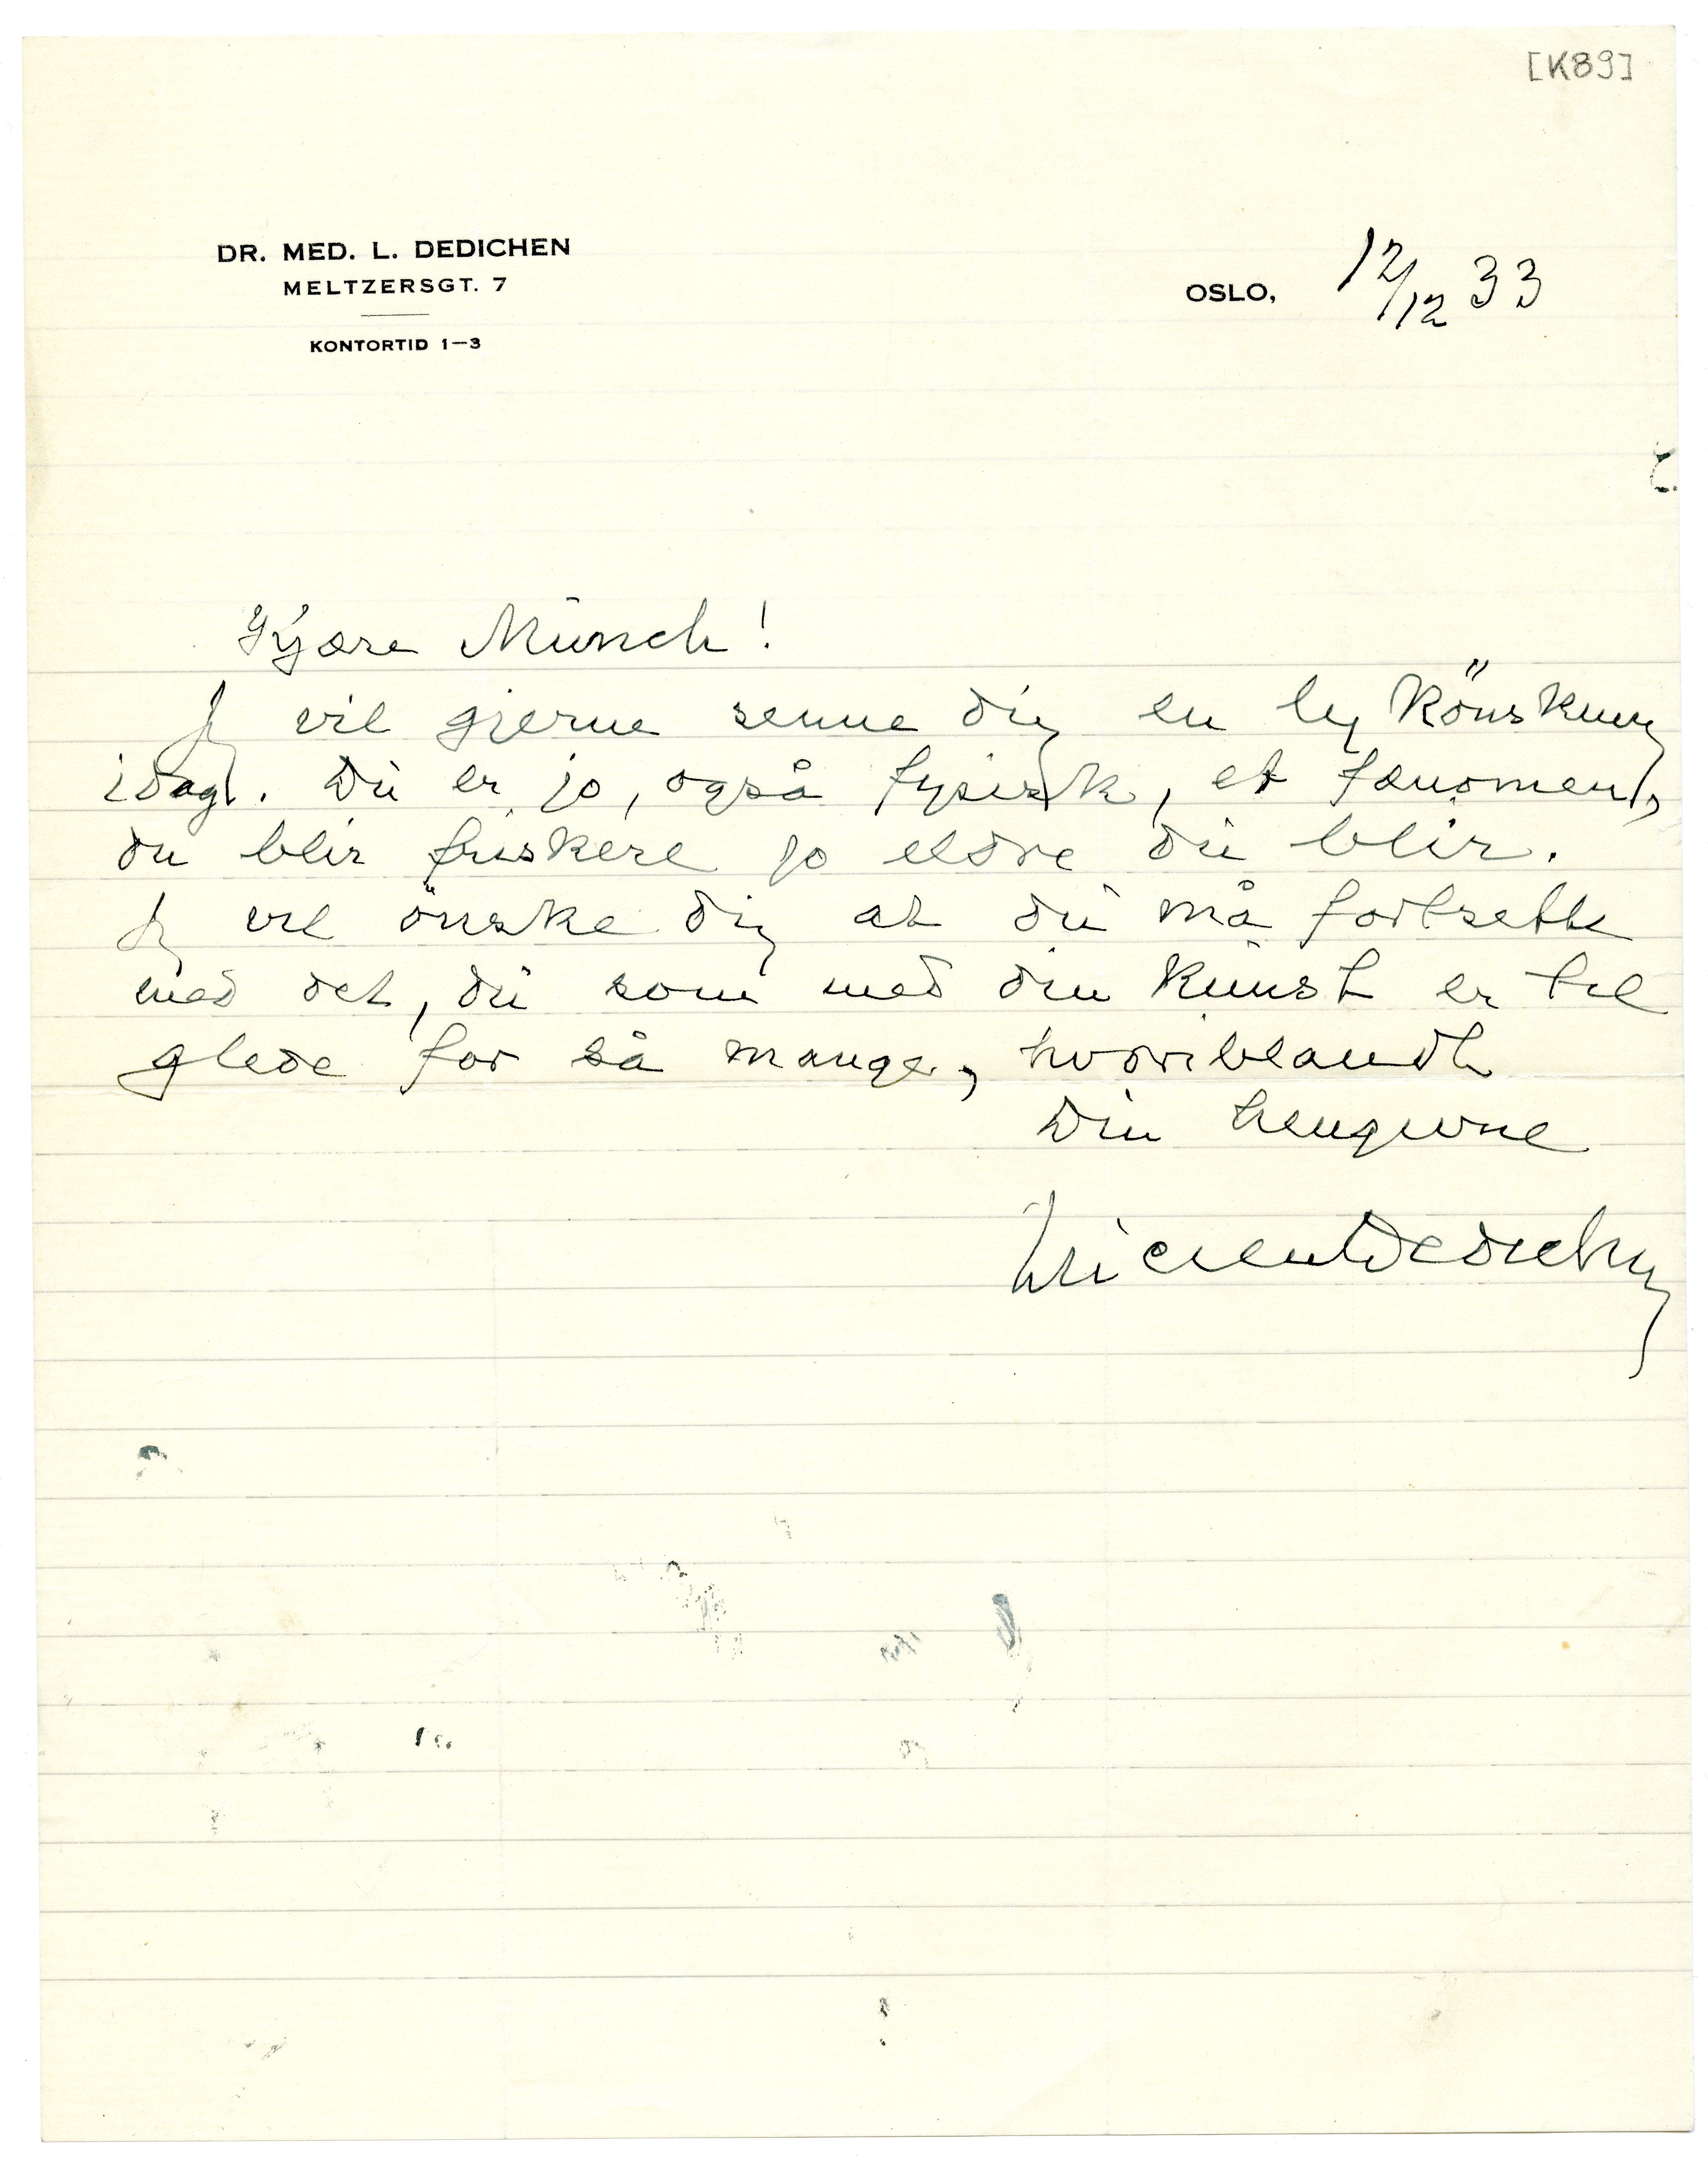 [K89]
DR. MED. L. DEDICHEN
MELTZERSGT. 7
KONTORTID 1—3
OSLO, 12/12 33
Kjære Munch!
Jeg vil gjerne senne dig en lykönskning
idag. Du er jo, også fysisk, et fænomen,
du blir friskere jo eldre du blir.
Jeg vil önske dig at du må fortsette
med det, du som med din kunst er til
glede for så mange, hvoriblandt
Din hengivne
Lucien Dedichen